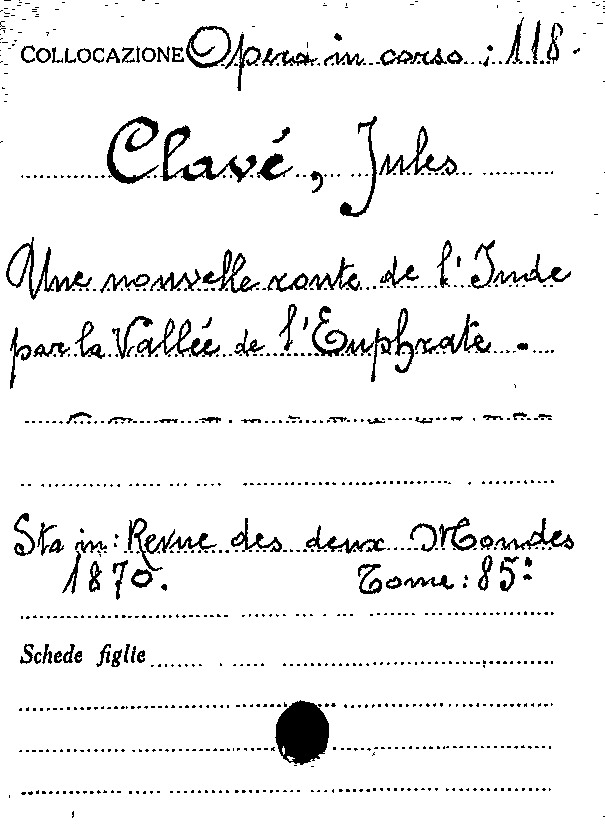 COLLOCAZIONE Opera in corso : 118.
Clavé, Jules
Une nouvelle route de l'Inde
par la Vallée de l'Euphrate.
Sta in: Revue des deux Mondes
1870. Tome: 85:
Schede figlie